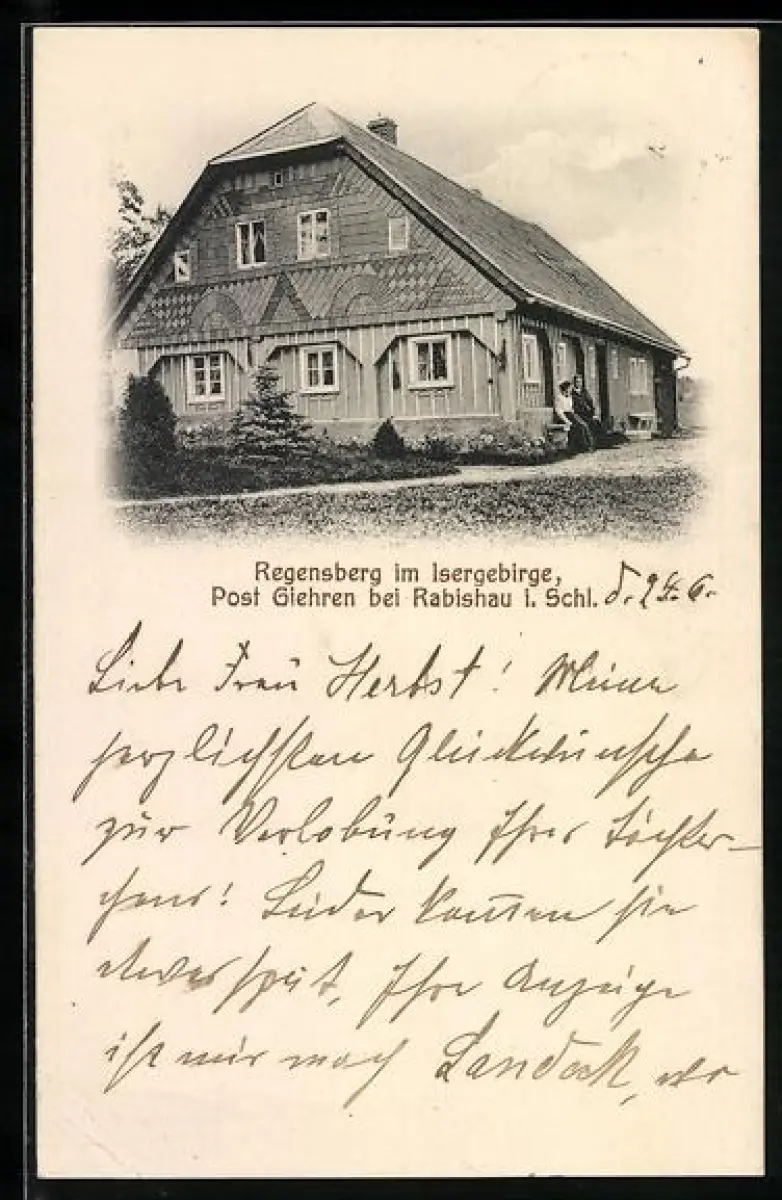 Regensberg im Isergebirge,
Post Giehren bei Rabishau i. Schl. d. 24. 6.
Liebe Frau Herbst! Meine
herzlichsten Glückwünsche
zur Verlobung Ihres Töchter-
chens! Leider kommen sie
etwas spät, Ihre Anzeige
ist mir nach Landeck, wo